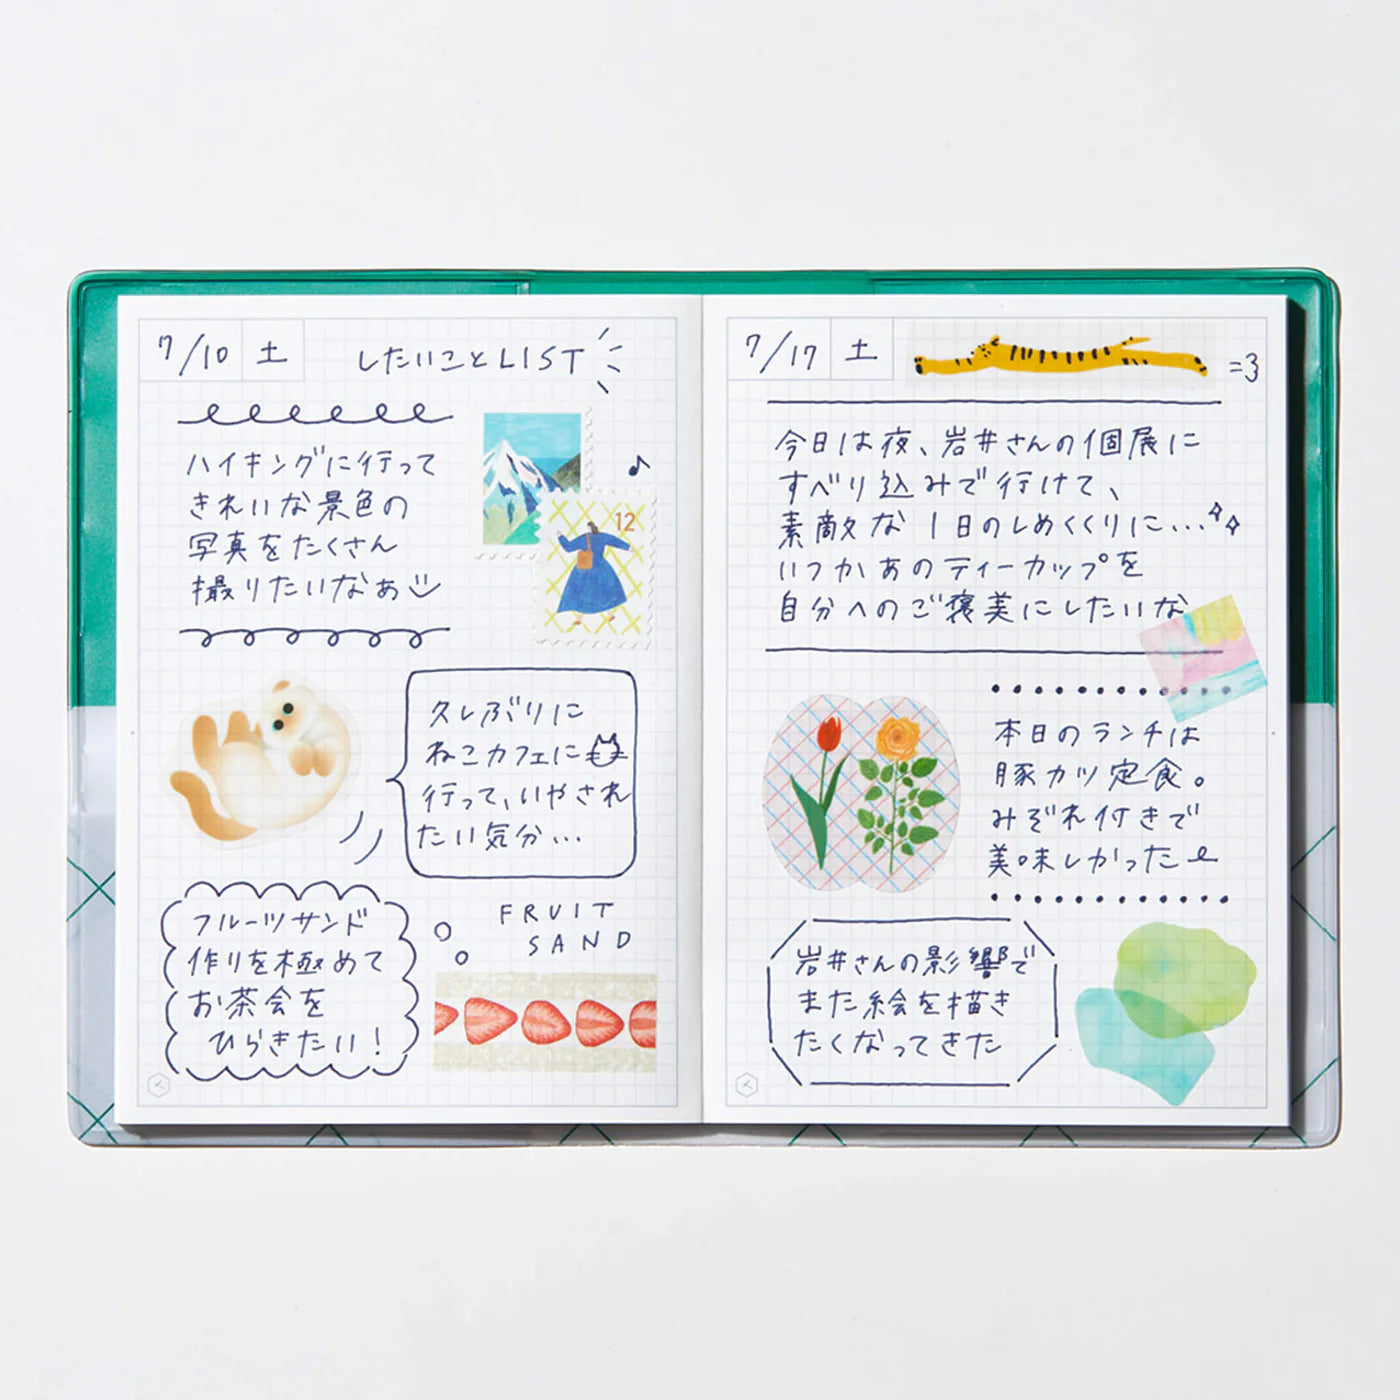 7/10 土 したいことLIST
ハイキングに行って
きれいな景色の
写真をたくさん
撮りたいなぁ
12
久しぶりに
ねこカフェに
行って、いやされ
たい気分…
フルーツサンド
作りを極めて
お茶会を
ひらきたい!
FRUIT
SAND
7/17 土
=3
今日は夜、岩井さんの個展に
すべり込みで行けて、
素敵な1日のしめくくりに…
いつかあのティーカップを
自分へのご褒美にしたいな
本日のランチは
豚カツ定食。
みぞれ付きで
美味しかった
岩井さんの影響で
また絵を描き
たくなってきた